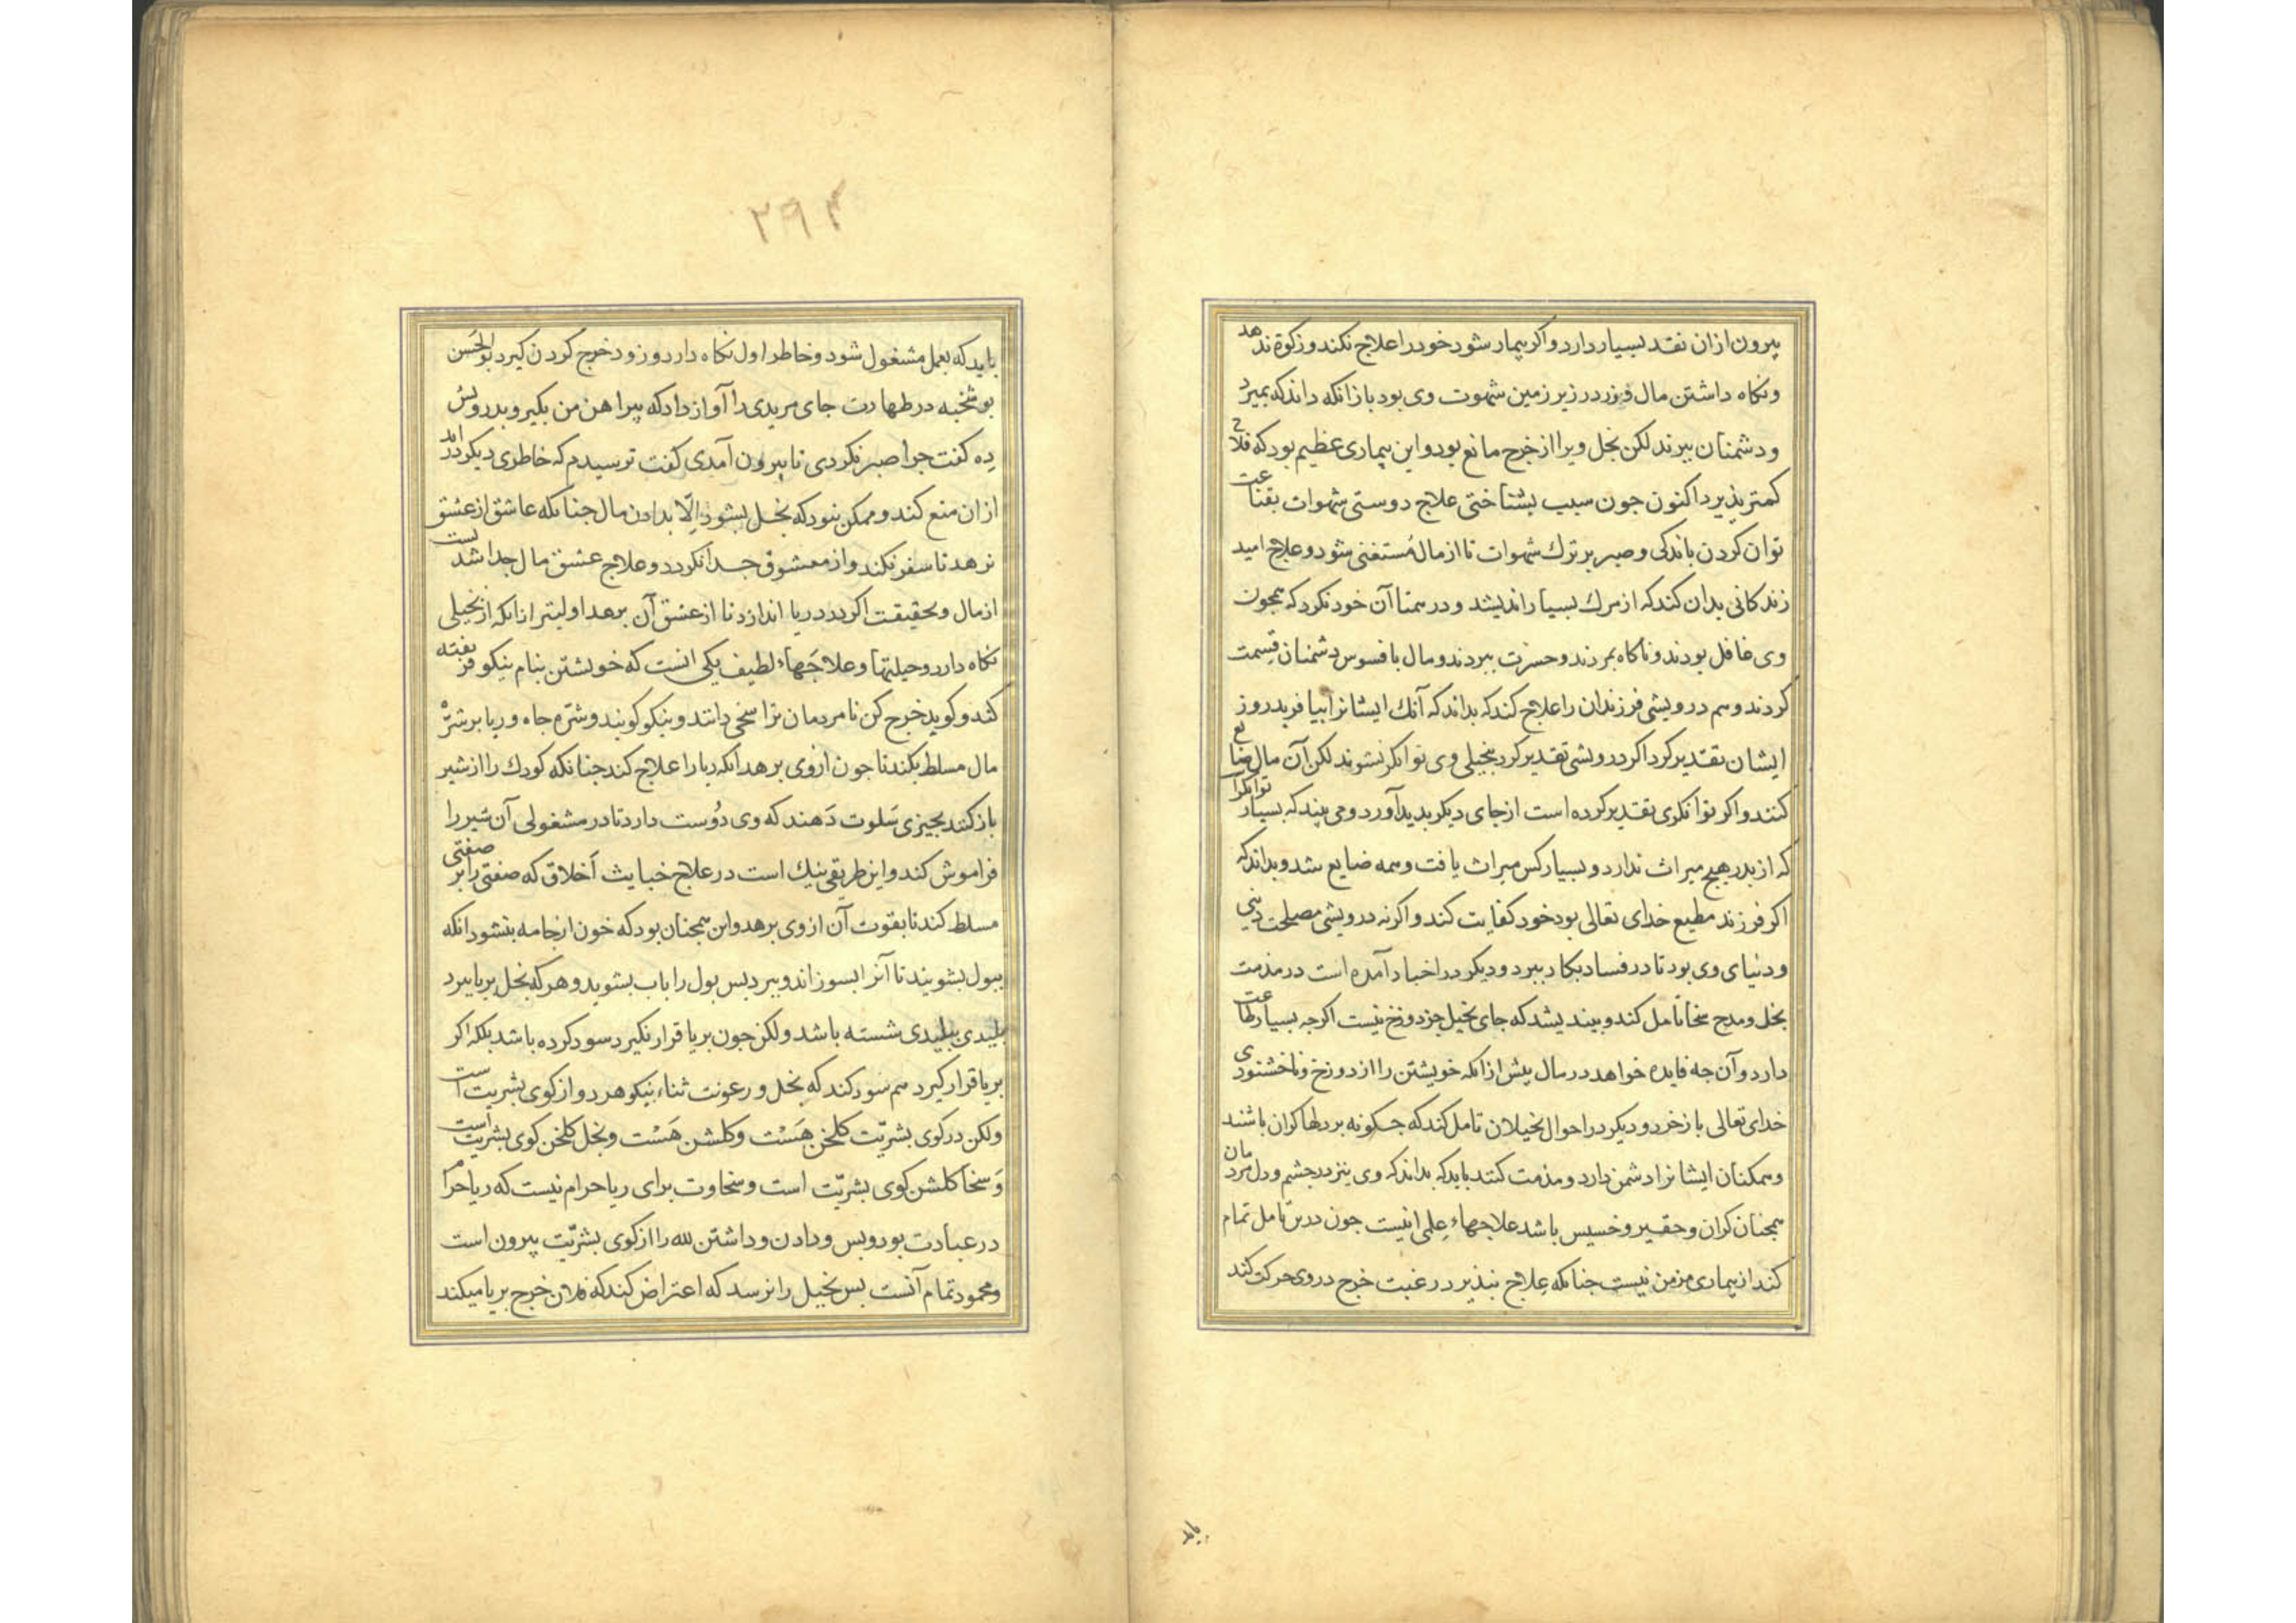 بیرون ازان نقد بسیار دارد و اکر بیمار شود خود را علاج نکند و زکوة ندهد
و نکاه داشتن مال و زر در زیر زمین شهوت وی بود باز انکه داند که بمیرد
و دشمنان ببرند لکن بخل ویرا از خرج مانع بود و این بیماری عظیم بود که علاج
کمتر پذیرد اکنون جون سبب بشناختی علاج دوستی شهوات بقناعت
توان کردن باندکی و صبر بر ترك شهوات تا از مال مُستغنی شود و علاج امید
زندکانی بدان کند که از مرك بسیار اندیشد و در همتا آن خود نکرد که همجون
وی غافل بودند و ناکاه بمردند و حسرت ببردند و مال بافسوس دشمنان قِسمت
کردند و بیم درویشی فرزندان را علاج کند که بداند که آنك ایشانرا بیافرید روزی
ایشان تقدیر کرد اکر درویشی تقدیر کرد ببخیلی وی توانکر نشوند لکن آن مال ضایع
کنند و اکر توانکری تقدیر کرده است از جای دیکر بدید آورد و می بیند که بسیار توانکر
که از بدر هیج میراث ندارد و بسیار کس میراث یافت و همه ضایع شد و بداند که
اکر فرزند مطیع خدای تعالی بود خود کفایت کند و اکر نه درویشی مصلحت دینی
و دنیای وی بود تا در فساد بکار نبرد و دیکر در اخبار آمده است در مذمت
بخل و مدح سخا تأمل کند و بیندیشد که جای بخیل جز دوزخ نیست اکر جه بسیار طاعت
دارد و آن جه فایده خواهد در مال بیش از انکه خویشتن را از دوزخ و ناخشنودی
خدای تعالی باز خرد و دیکر در احوال بخیلان تامل کند که جکونه بر دلها کران باشند
و همکنان ایشانرا دشمن دارد و مذمت کنند باید که بداند که وی نیز در جشم و دل مردمان
همجنان کران و حقیر و خسیس باشد علاجهاء عِلمی اینست جون درین تامل تمام
کند از بیماری مزمن نیست جنانکه عِلاج نپذیرد رغبت خرج در وی حرکت کند
باید
۲۹۴
باید که بعمل مشغول شود و خاطر اول نکاه دارد و زود خرج کردن کیرد بوالحَسن
بوشَنجه در طهارت جای مریدی را آواز داد که پیراهن من بکیر و بدرویش
دِه کفت جرا صبر نکردی تا بیرون آمدی کفت ترسیدم که خاطری دیکر دراید
ازان منع کند و ممکن نبود که بخل بشود اِلّا بدادن مال جنانکه عاشق از عشق
نرهد تا سفر نکند و از معشوق جدا نکردد و علاج عشق مال جدا شدنست
از مال و بحقیقت اکر در دریا اندازد تا از عشق آن برهد اولیتر از انکه از بخیلی
نکاه دارد و حیلتها و علاجَهاء لطیف یکی انست که خویشتن بنام نیکو فریفته
کند و کوید خرج کن تا مردمان ترا سخی دانند و نیکو کویند و شَرَه جاه و ریا بر شرَه
مال مسلط بکند تا جون ازوی برهد انکه ریا را علاج کند جنانکه کودك را از شیر
باز کنند بجیزی سَلوت دَهند که وی دُوست دارد تا در مشغولی آن شیر را
فراموش کند و این طریقی نیك است در علاج خبایث اَخلاق که صفتی را بر صفتی
مسلط کند تا بقوت آن از وی برهد و این همجنان بود که خون از جامه بنشود انکه
ببول بشویند تا آنرا بسوزاند و ببرد بس بول را باب بشوید و هر که بخل بریا ببرد
بلیدی ببلیدی شسته باشد ولکن جون بریا قرار نکیرد سود کرده باشد بلکه اکر
بریا قرار کیرد هم سود کند که بخل و رعونت ثناء نیکو هر دو از کوی بشریت است
ولکن در کوی بشریّت کلخن هَسْت و کلشن هَسْت و بخل کلخن کوی بشریت است
وَ سخا کلشن کوی بشریّت است و سخاوت برای ریا حرام نیست که ریا حرام
در عبادت بود و بس و دادن و داشتن لله را از کوی بشریّت بیرون است
و محمود تمام آنست بس بخیل را نرسد که اعتراض کند که فلان خرج بریا میکند